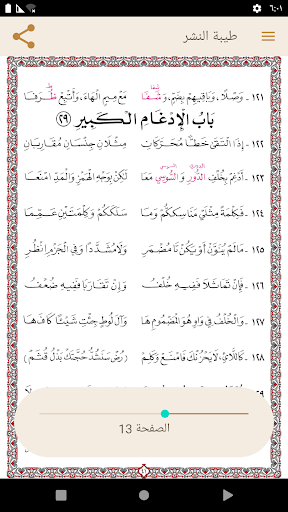 ٦:٠١
طيبة النشر
١٢١ - وَصَلًا، وَبَاقِيهِمْ بِضَمٍّ، وَشَفَا مَعْ مِيمٍ الْهَاءَ، وَأَتْبِعْ ظَرَفَا
بَابُ الْإِدْغَامِ الْكَبِيرِ (٢٩)
١٢٢ - إِذَا الْتَقَى خَطًّا مُحَرَّكَانِ مِثْلَانِ جِنْسَانِ مُقَارِبَانِ
١٢٣ - أَدْغِمْ بِخُلْفِ الدُّورِ وَالسُّوسِي مَعَا لَكِنْ بِوَجْهِ الْهَمْزِ وَالْمَدِّ امْنَعَا
١٢٤ - فَكِلْمَةً مِثْلَيْ مَنَاسِكَكُمْ وَمَا سَلَكَكُمْ وَكِلْمَتَيْنِ عَمِّمَا
١٢٥ - مَا لَمْ يُنَوَّنْ أَوْ يَكُنْ تَا مُضْمَرِ وَلَا مُشَدَّدًا وَفِي الْجَزْمِ انْظُرِ
١٢٦ - فَإِنْ تَمَاثَلَا فَفِيهِ خُلْفُ وَإِنْ تَقَارَبَا فَفِيهِ ضُعْفُ
١٢٧ - وَالْخُلْفُ فِي وَاوِ هُوَ الْمَضْمُومِ هَا وَآلَ لُوطٍ جِئْتِ شَيْئًا كَافَ هَا
١٢٨ - كَاللَّائِي، لَا يَحْزُنْكَ فَامْنَعْ وَكَلِمْ (رُضْ سَنَشُدُّ حُجَّتَكْ بَذْلُ قُثَمْ)
الصفحة 13